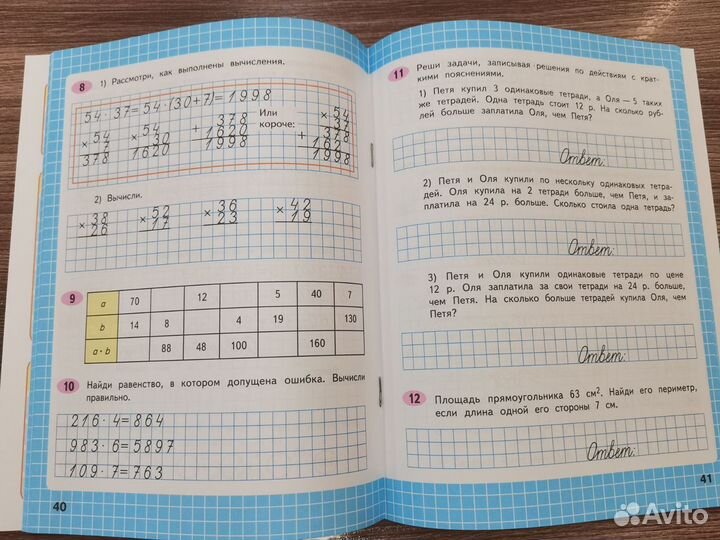 8 1) Рассмотри, как выполнены вычисления.
54 · 37 = 54 · (30 + 7) = 1998
× 54 × 54 + 378 Или × 54
7 30 1620 короче: 37
378 1620 1998 + 378
162
1998
2) Вычисли.
× 38 × 52 × 36 × 42
26 17 23 19
9
a 70 12 5 40 7
b 14 8 4 19 130
a · b 88 48 100 160
10 Найди равенство, в котором допущена ошибка. Вычисли
правильно.
216 · 4 = 864
983 · 6 = 5897
109 · 7 = 763
40
11 Реши задачи, записывая решения по действиям с крат-
кими пояснениями.
1) Петя купил 3 одинаковые тетради, а Оля — 5 таких
же тетрадей. Одна тетрадь стоит 12 р. На сколько руб-
лей больше заплатила Оля, чем Петя?
Ответ:
2) Петя и Оля купили по нескольку одинаковых тетра-
дей. Оля купила на 2 тетради больше, чем Петя, и за-
платила на 24 р. больше. Сколько стоила одна тетрадь?
Ответ:
3) Петя и Оля купили одинаковые тетради по цене
12 р. Оля заплатила за свои тетради на 24 р. больше,
чем Петя. На сколько больше тетрадей купила Оля, чем
Петя?
Ответ:
12 Площадь прямоугольника 63 см². Найди его периметр,
если длина одной его стороны 7 см.
Ответ:
41
Avito